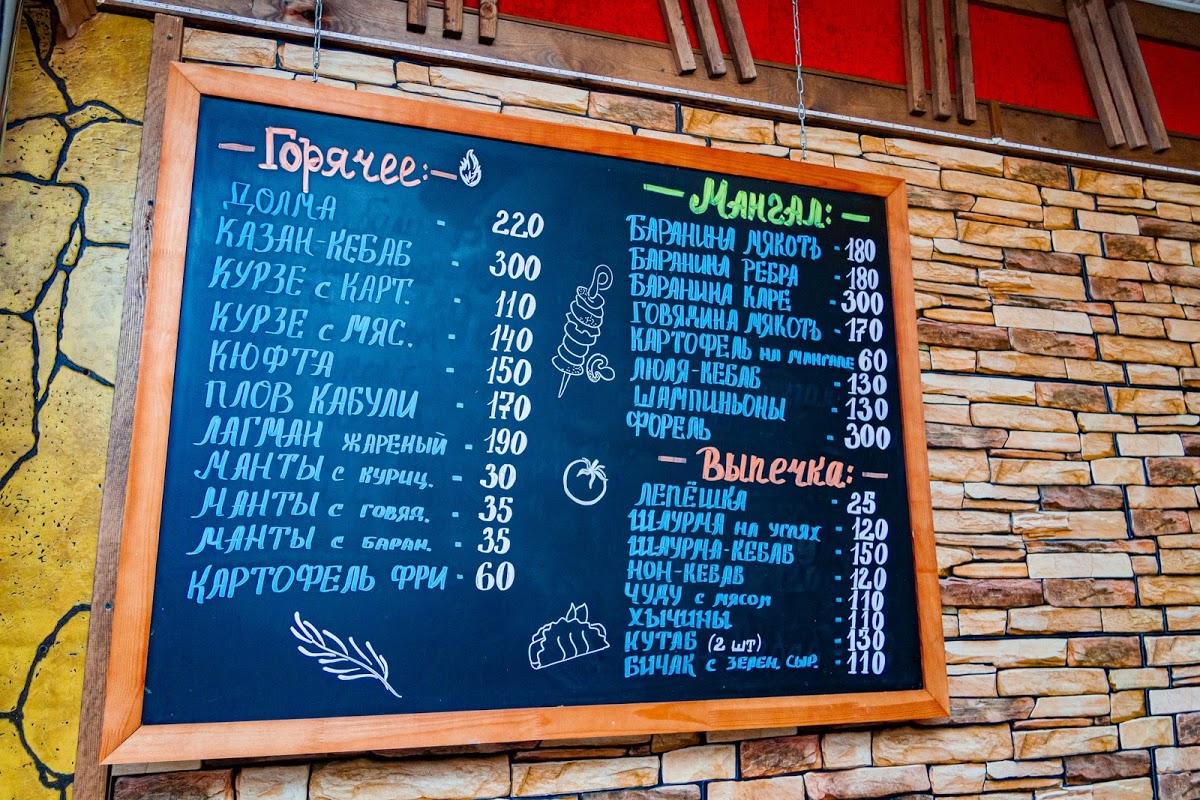 Горячее:
ДОЛМА - 220
КАЗАН-КЕБАБ - 300
КУРЗЕ с КАРТ. - 110
КУРЗЕ с МЯС. - 140
КЮФТА - 150
ПЛОВ КАБУЛИ - 170
ЛАГМАН ЖАРЕНЫЙ - 190
МАНТЫ с КУРИЦ. - 30
МАНТЫ с ГОВЯД. - 35
МАНТЫ с БАРАН. - 35
КАРТОФЕЛЬ ФРИ - 60
Мангал:
БАРАНИНА МЯКОТЬ - 180
БАРАНИНА РЕБРА - 180
БАРАНИНА КАРЕ - 300
ГОВЯДИНА МЯКОТЬ - 170
КАРТОФЕЛЬ НА МАНГАЛЕ 60
ЛЮЛЯ-КЕБАБ - 130
ШАМПИНЬОНЫ - 130
ФОРЕЛЬ - 300
Выпечка:
ЛЕПЁШКА - 25
ШАУРМА НА УГЛЯХ - 120
ШАУРМА-КЕБАБ - 150
НОН-КЕБАБ - 120
ЧУДУ с МЯСОМ - 110
ХЫЧИНЫ - 110
КУТАБ (2 ШТ) - 130
БИЧАК с ЗЕЛЕН. СЫР. - 110